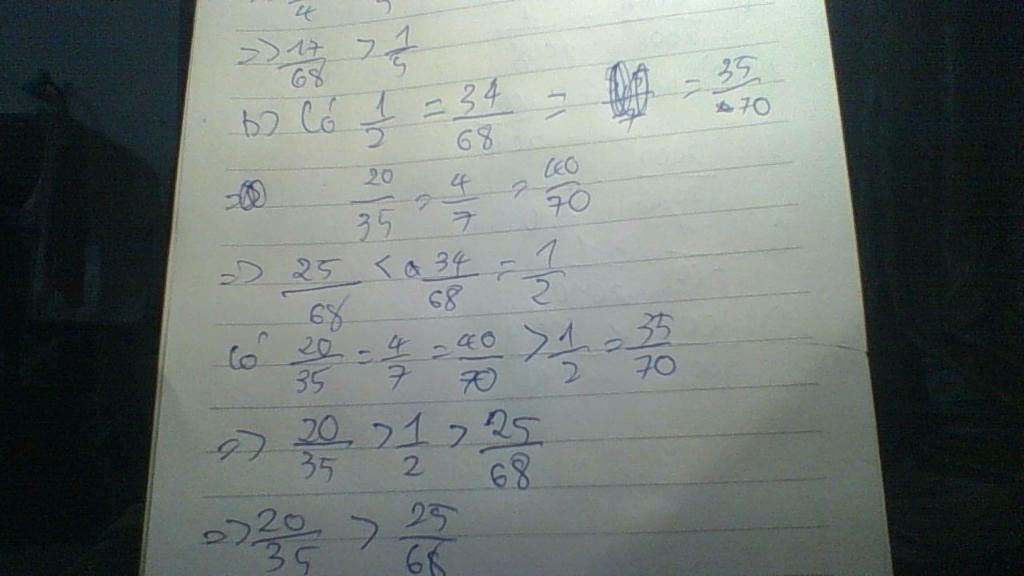 => 17/68 > 1/5
b) Có 1/2 = 34/68 = = 35/70
= 20/35 = 4/7 = 40/70
=> 25/68 < 34/68 = 1/2
Có 20/35 = 4/7 = 40/70 > 1/2 = 35/70
=> 20/35 > 1/2 > 25/68
=> 20/35 > 25/68